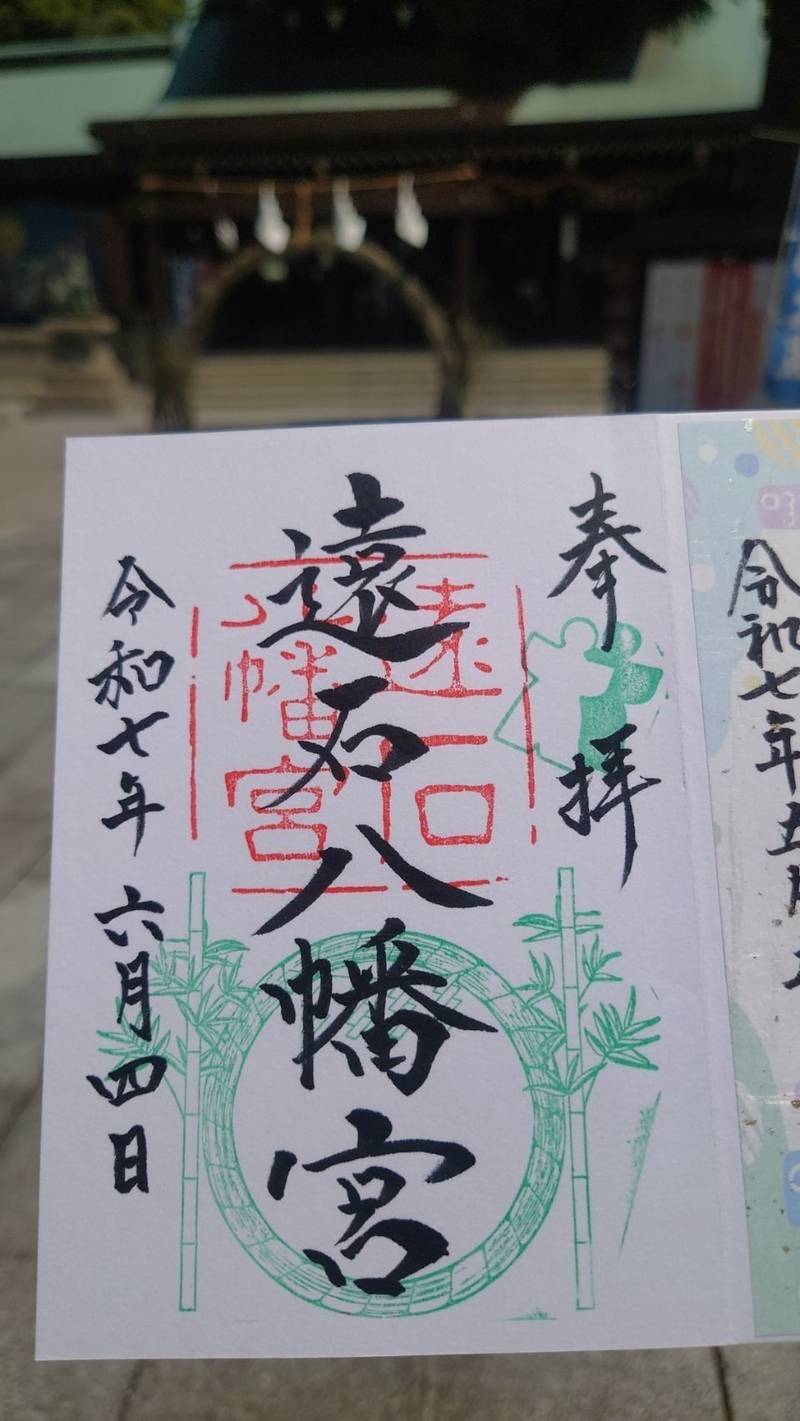 令和七年五月
奉拝
遠石八幡宮
遠石
八幡宮
令和七年六月四日